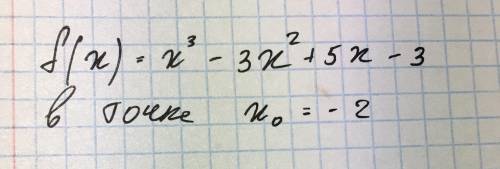 f(x) = x³ - 3x² + 5x - 3
в точке x₀ = - 2